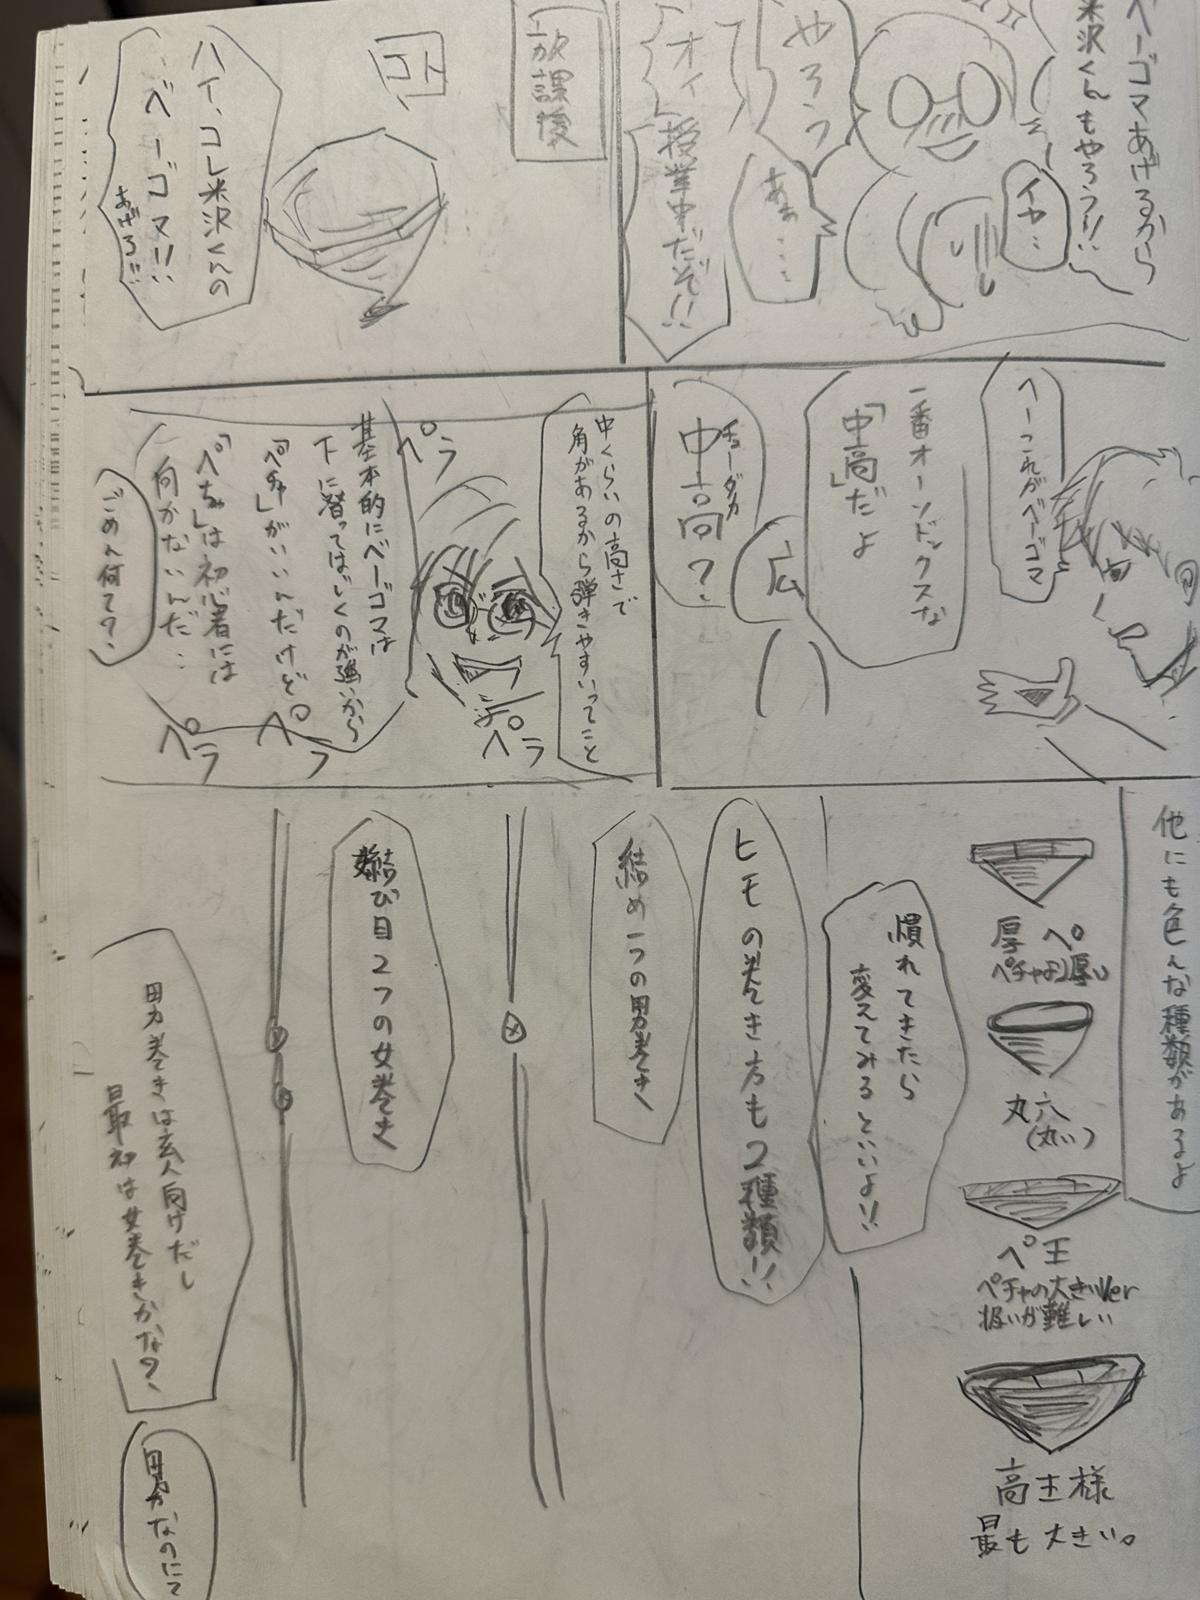 ベーゴマあげるから
米沢くんもやろう!!
イヤ…
やろう
あぁ…
オイ
授業中だぞ!!
放課後
コト
ハイ、コレ米沢くんの
ベーゴマ!!
あげる!!
へーこれがベーゴマ
一番オーソドックスな
「中高」だよ
チューダカ
中高?
広
中くらいの高さで
角があるから弾きやすいってこと
ペラ
ペラ
基本的にベーゴマは
下に潜ってはじくのが強いから
「ペチャ」がいいんだけど
「ペちゃ」は初心者には
向かないんだ…
ペラ
ペラ
ごめん何て?
他にも色んな種類があるよ
厚ペ
ペチャより厚い
丸六
(丸い)
ペ王
ペチャの大きいVer
扱いが難しい
高王様
最も大きい。
慣れてきたら
変えてみるといいよ!!
ヒモの巻き方も2種類!!
結め一つの男巻き
結び目2つの女巻き
男巻きは玄人向けだし
最初は女巻きかな?
男なのにて